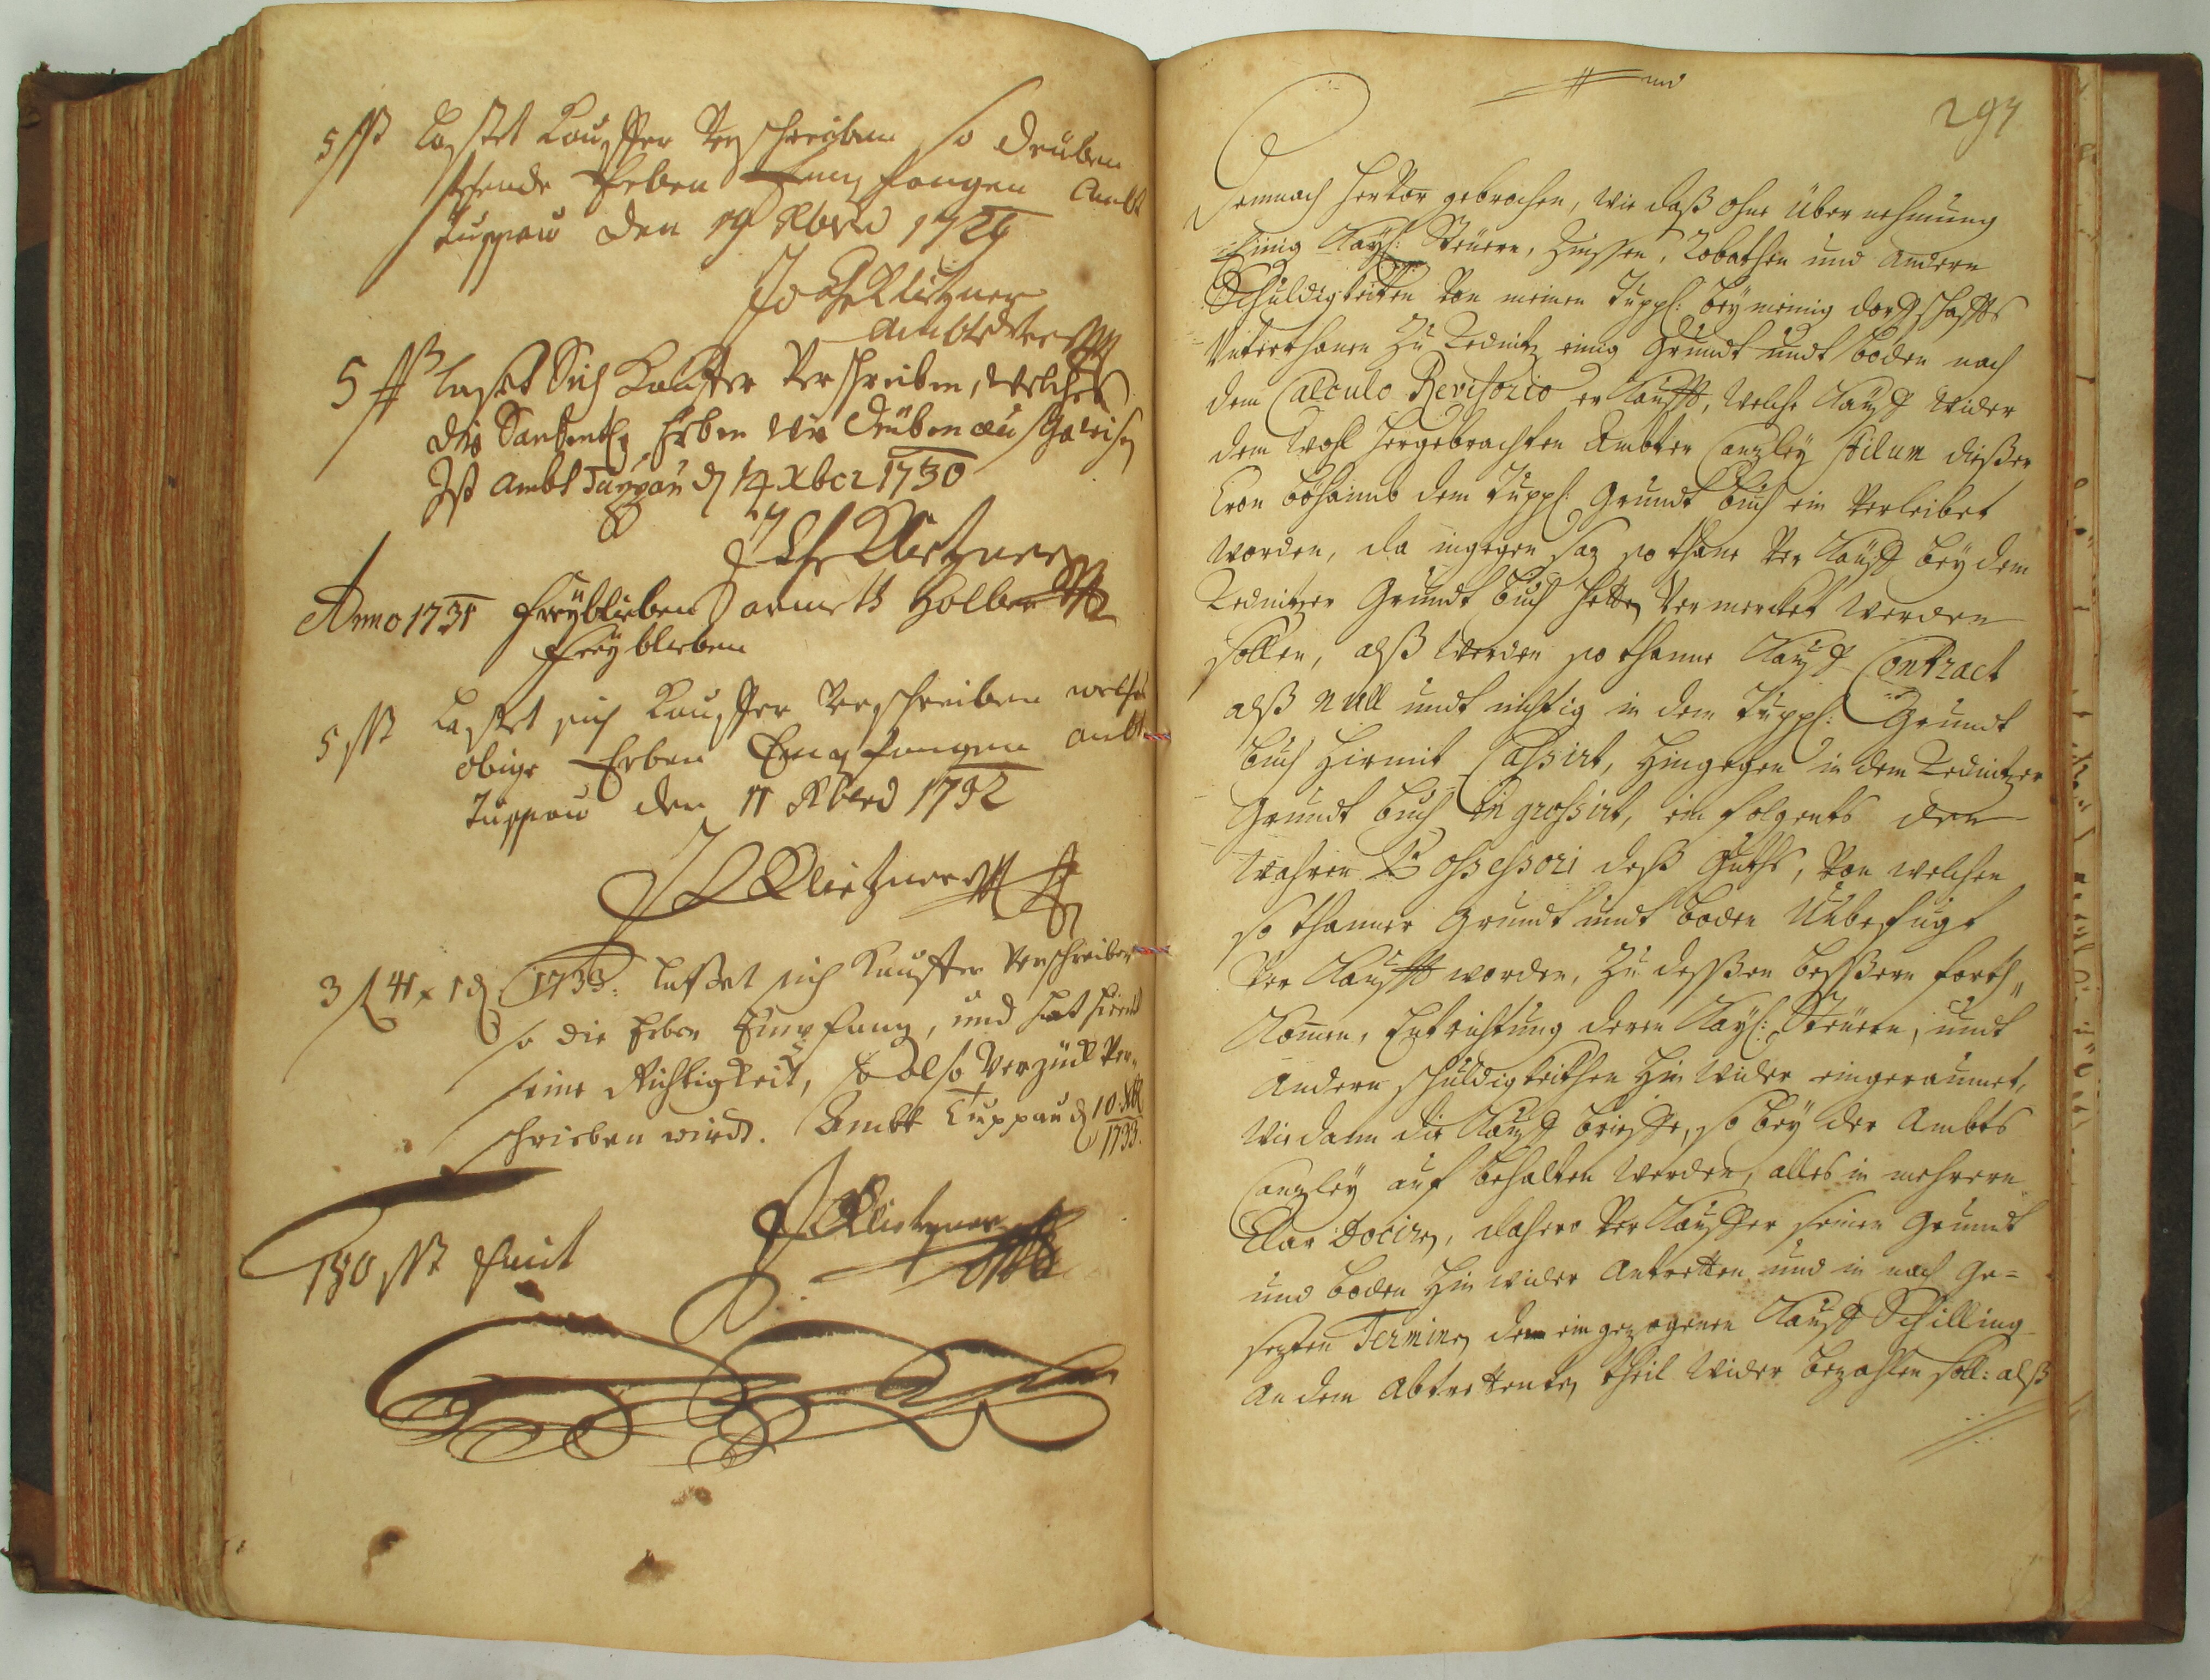 5 ß Lasset Kauffer Verschreiben so drüben
stehende Erben Empfangen Ambt
Tuppau den 19 Xbris 1729
Klietzner
5 ß lasset Sich Kauffer Verschreiben, welches
die Erben wie drüben
Ist Ambt Tuppau d 14 Xber 1730
Klietzner
Anno 1731 freyblieben
freyblieben
5 ß Lasset sich Kauffer Verschreiben welche
obige Erben Empfangen Ambt
Tuppau den 11 Xbris 1732
Klietzner
3 ß 41 x 1 d 1733: lasset sich Kauffer Verschreiben
so die Erben Empfang, und hat hiemit
seine Richtigkeit, so also Verzückt Ver-
schrieben wirdt. Ambt Tuppau d 10 Xbr
1733.
Klietzner
180 ß fuit
297
Demnach hervor gebrochen, wie daß ohne Über nehmung
Einig Kayß: Steüern, Zinssen, Robothen und Andern
Schuldigkeiten von meinen Tuppl: bey meinig
Unterthanen Zu Rednitz einig Grundt undt boden nach
dem Calculo Revisorio er Kaufft, welche Kauff wider
dem Wohl hergebrachten Ambter Canzley Stilum dießer
Cron böhaimb dem Tuppl: Grundt buch ein Verleibet
worden, da ingegen so thane Ver Kauff bey dem
Rednitzer Grundt buch hette Vermercket werden
sollen, alß werden so thanne Kauff Contract
alß Null undt nichtig in dem Tuppl: Grundt
buch hiermit Cassirt, hingegen in dem Rednitzer
Grundt buch Ingrossirt, ein folgents den
wahren Possessori deß Guths, Von welchen
so thanner Grundt undt boden Unbefugt
Ver Kaufft worden, Zu dessßen besßern forth„
Komen, Entrichtung deren Kayß: Steüern, undt
Andern schuldigkeithen hin wider eingeraumet,
Wie dann die Kauff brieffe, so bey der Ambts
Canzley auf behalten werden, alles in mehrern
Clar Dociren, dahero Ver Kauffer seinen Grundt
und boden hin wider Antretten und in nach Ge=
sezten Terminen den ein gezogenen Kauff Schilling
An dem Abtrettenten theil wider bezahlen soll: alß